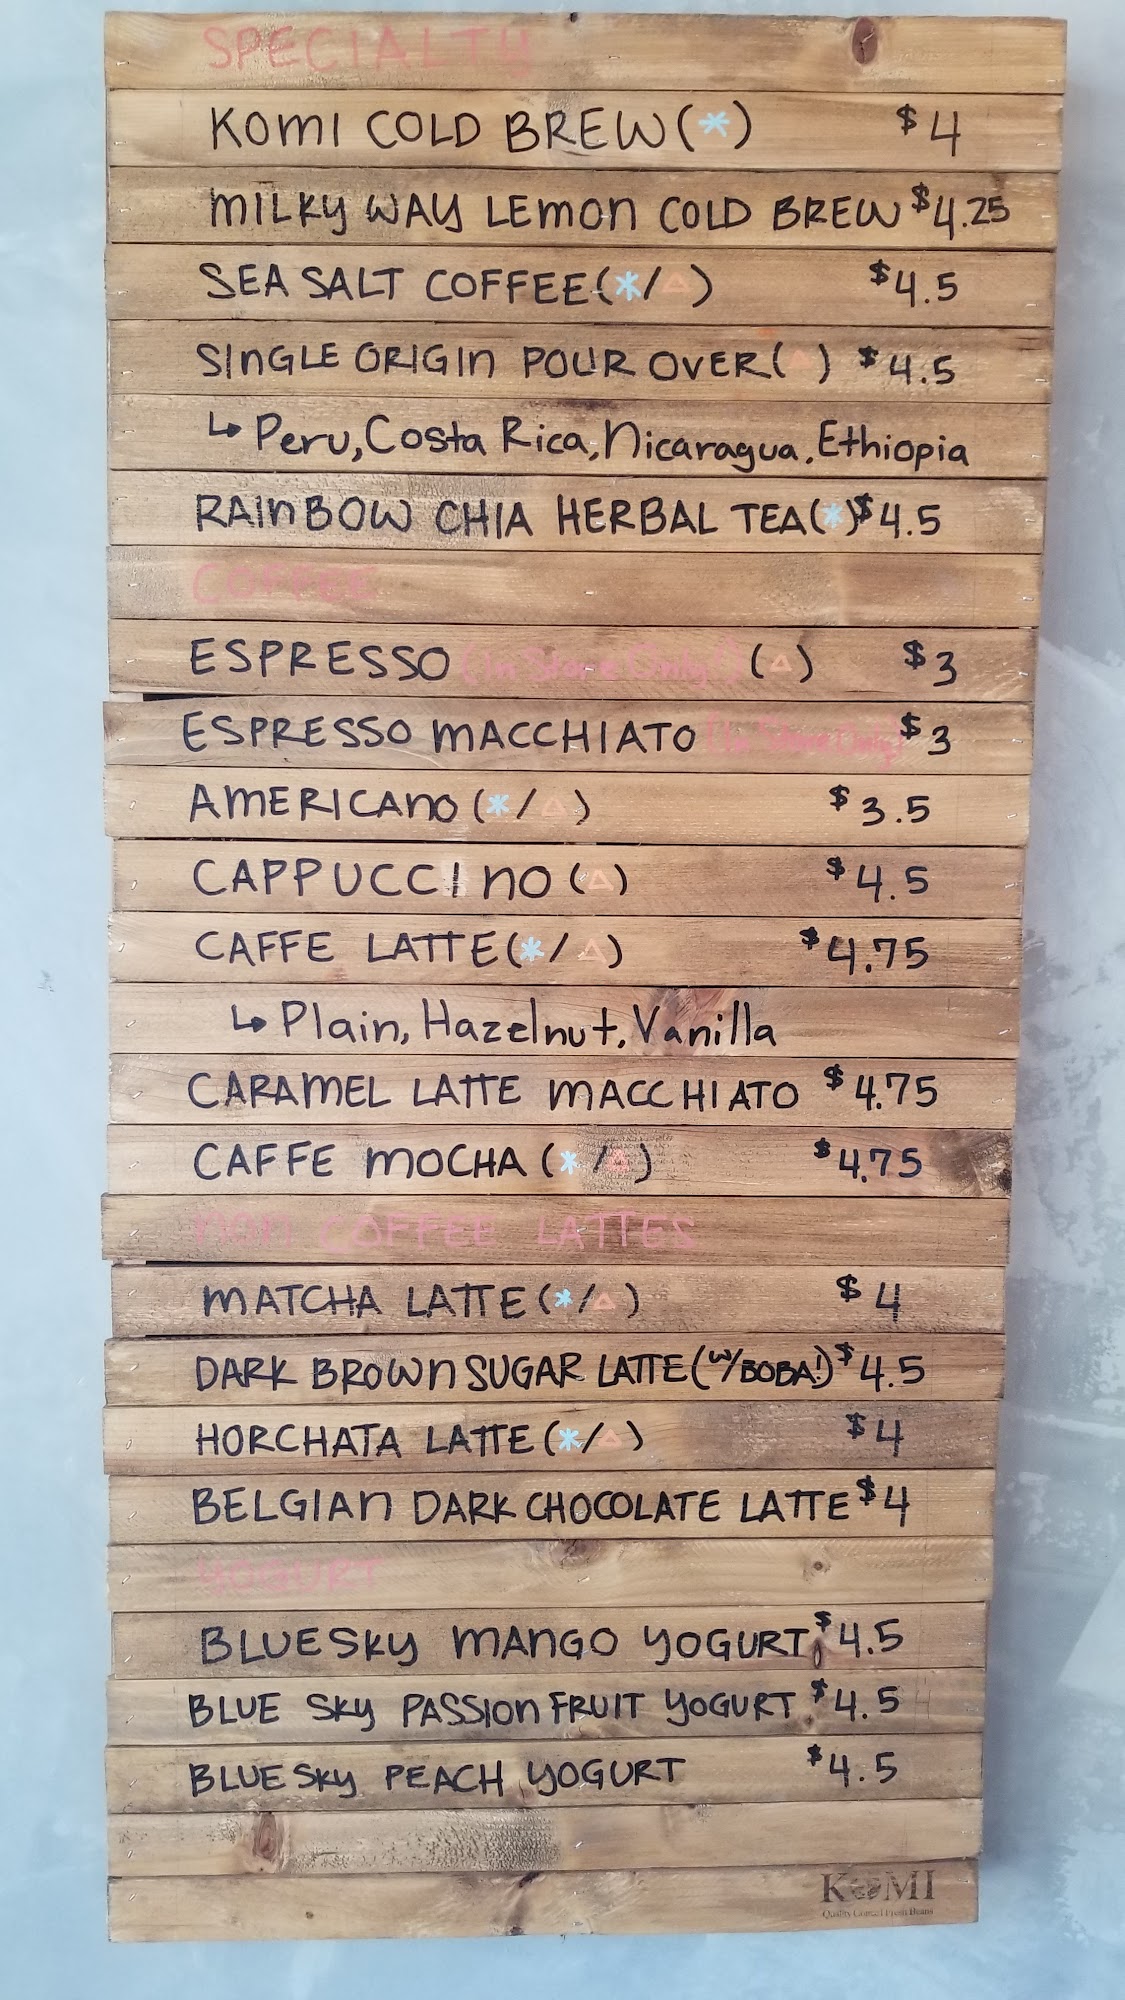 SPECIALTY
KOMI COLD BREW (*) $4
MILKY WAY LEMON COLD BREW $4.25
SEA SALT COFFEE (*/△) $4.5
SINGLE ORIGIN POUR OVER (△) $4.5
↳ Peru, Costa Rica, Nicaragua, Ethiopia
RAINBOW CHIA HERBAL TEA (*) $4.5
COFFEE
ESPRESSO (In Store Only!) (△) $3
ESPRESSO MACCHIATO (In Store Only) $3
AMERICANO (*/△) $3.5
CAPPUCCINO (△) $4.5
CAFFE LATTE (*/△) $4.75
↳ Plain, Hazelnut, Vanilla
CARAMEL LATTE MACCHIATO $4.75
CAFFE MOCHA (*/△) $4.75
NON COFFEE LATTES
MATCHA LATTE (*/△) $4
DARK BROWN SUGAR LATTE (W/BOBA!) $4.5
HORCHATA LATTE (*/△) $4
BELGIAN DARK CHOCOLATE LATTE $4
YOGURT
BLUE SKY MANGO YOGURT $4.5
BLUE SKY PASSION FRUIT YOGURT $4.5
BLUE SKY PEACH YOGURT $4.5
KOMI
Quality Fresh Beans